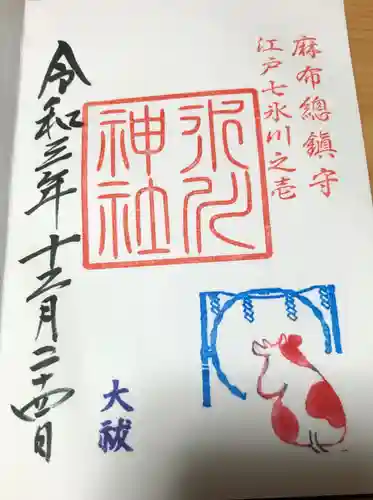 麻布總鎮守
江戸七氷川之壱
氷川
神社
令和三年十二月二十四日
大祓